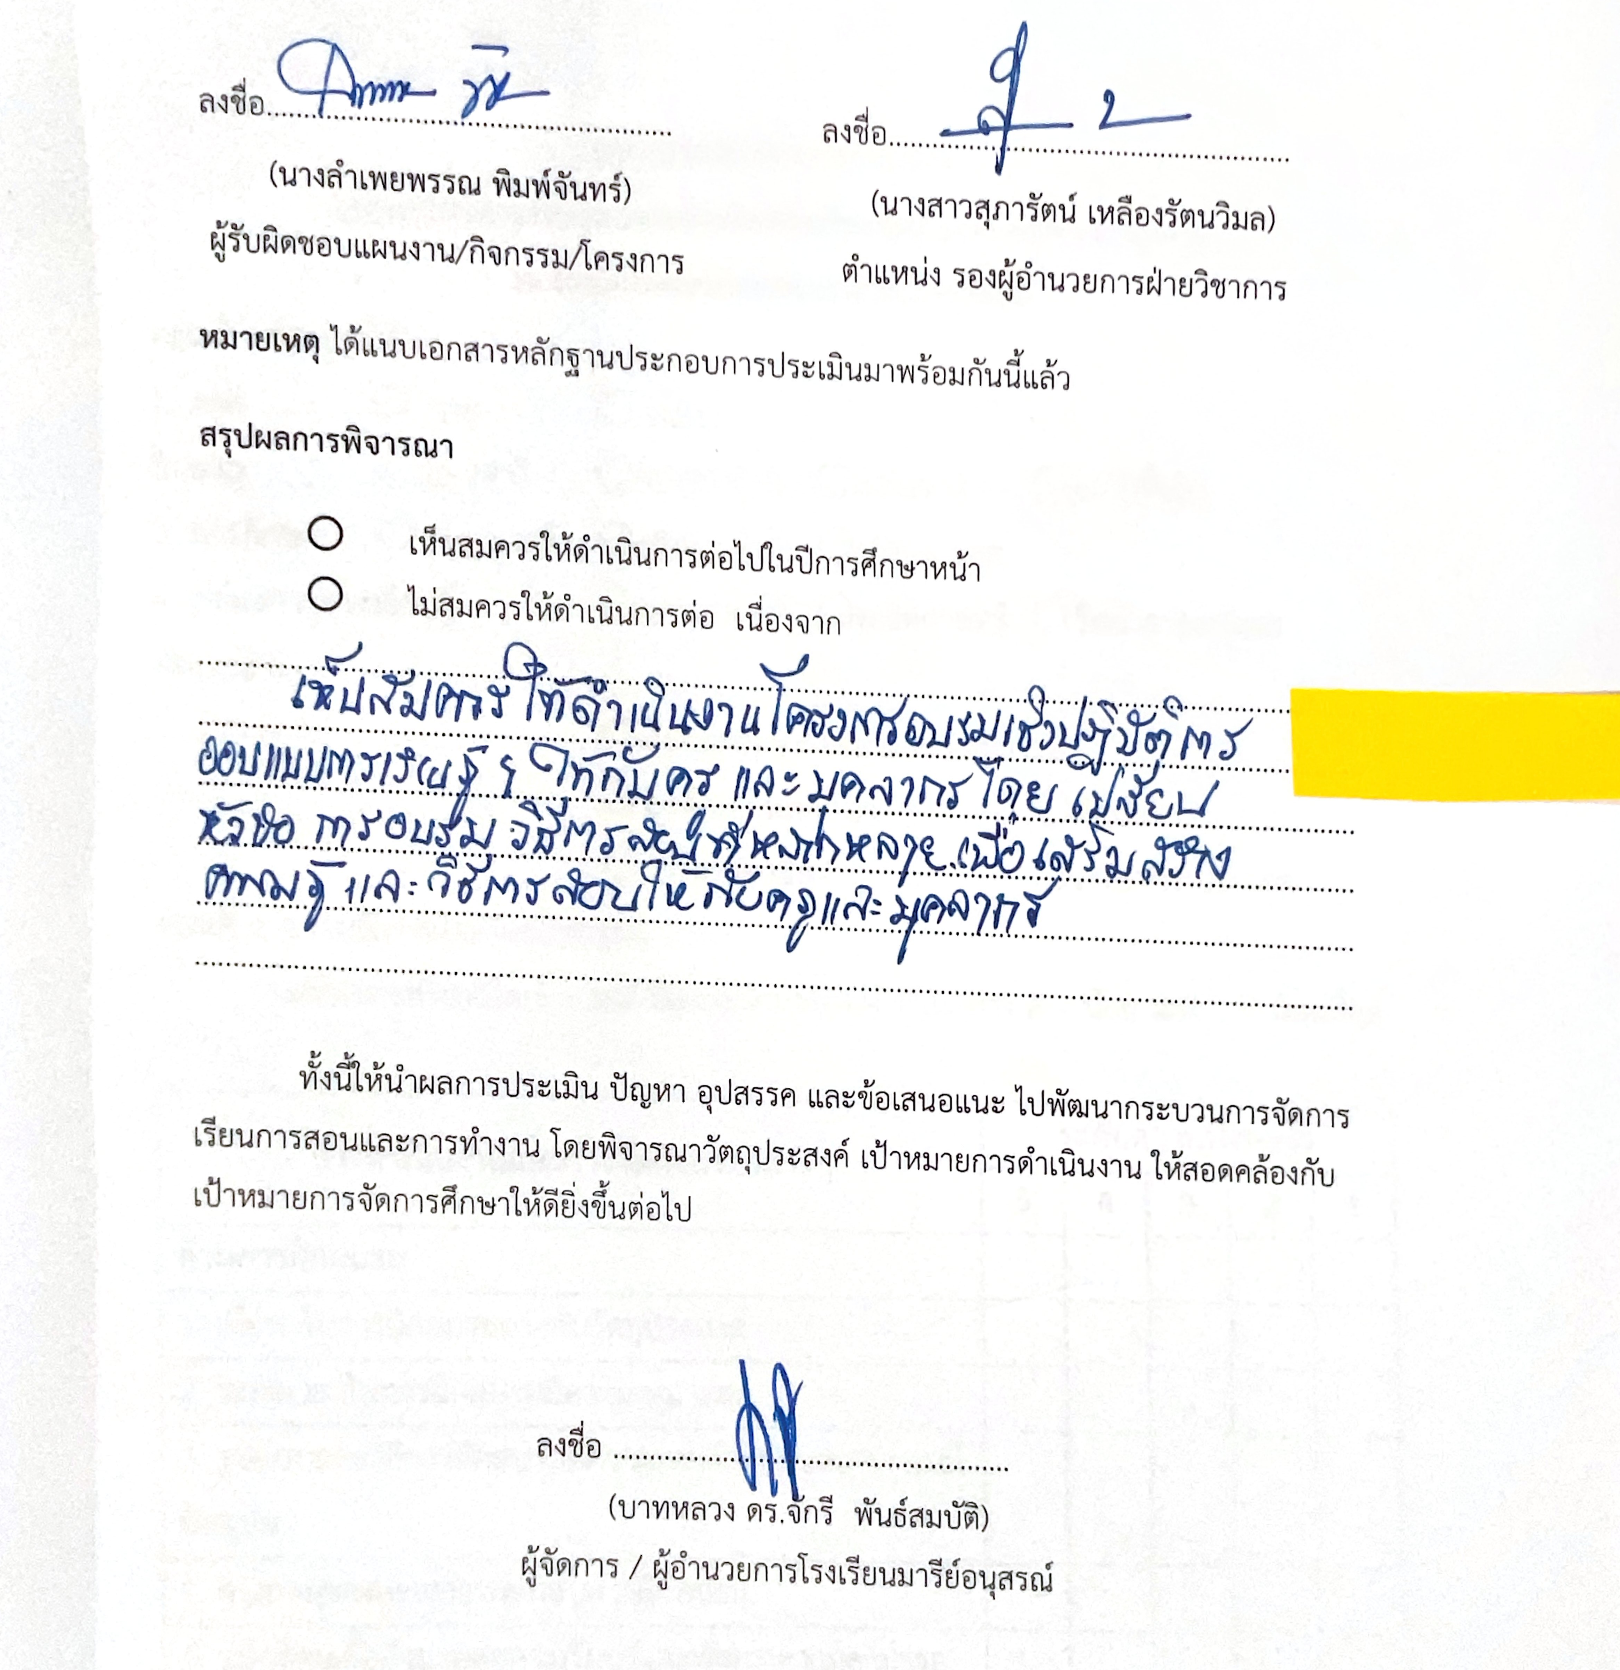 ลงชื่อ
ลงชื่อ
(นางลำเพยพรรณ พิมพ์จันทร์)
(นางสาวสุภารัตน์ เหลืองรัตนวิมล)
ผู้รับผิดชอบแผนงาน/กิจกรรม/โครงการ
ตำแหน่ง รองผู้อำนวยการฝ่ายวิชาการ
หมายเหตุ ได้แนบเอกสารหลักฐานประกอบการประเมินมาพร้อมกันนี้แล้ว
สรุปผลการพิจารณา
เห็นสมควรให้ดำเนินการต่อไปในปีการศึกษาหน้า
ไม่สมควรให้ดำเนินการต่อ เนื่องจาก
เห็นสมควรให้ดำเนินงานโครงการอบรมเชิงปฏิบัติการ
ออกแบบการเรียนรู้ ให้กับครู และบุคลากร โดย เปลี่ยน
หัวข้อ การอบรม วิธีการสอนที่หลากหลาย เพื่อเสริมสร้าง
ความรู้ และวิธีการสอนให้กับครูและบุคลากร
ทั้งนี้ให้นำผลการประเมิน ปัญหา อุปสรรค และข้อเสนอแนะ ไปพัฒนากระบวนการจัดการ
เรียนการสอนและการทำงาน โดยพิจารณาวัตถุประสงค์ เป้าหมายการดำเนินงาน ให้สอดคล้องกับ
เป้าหมายการจัดการศึกษาให้ดียิ่งขึ้นต่อไป
ลงชื่อ
(บาทหลวง ดร.จักรี พันธ์สมบัติ)
ผู้จัดการ / ผู้อำนวยการโรงเรียนมารีย์อนุสรณ์